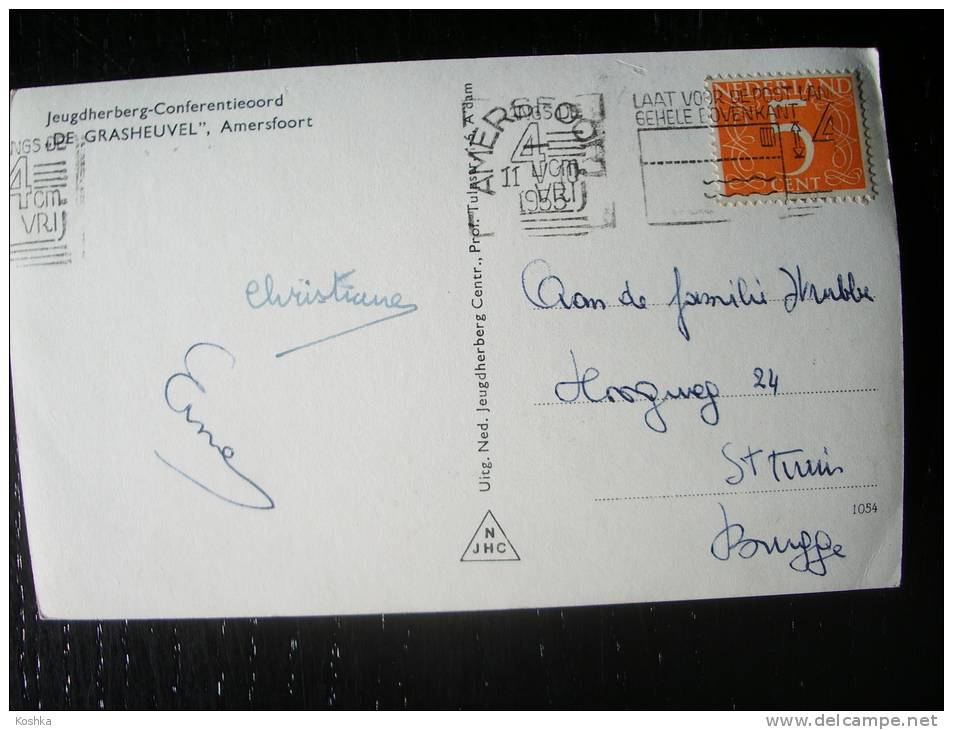 Jeugdherberg-Conferentieoord
„DE GRASHEUVEL”, Amersfoort
NGS DE
4 cm
VRIJ
Christiane
Erna
Uitg. Ned. Jeugdherberg Centr., Prof. Tulpstr. A'dam
N
JHC
AMERSFOORT
11 V
1955
4 cm
VRIJ
LAAT VOOR DE POST LAN
GEHELE BOVENKANT
4
NEDERLAND
5
CENT
Aan de familie
Hoogweg 24
St Kruis
Brugge
1054
Koshka
www.delcampe.net